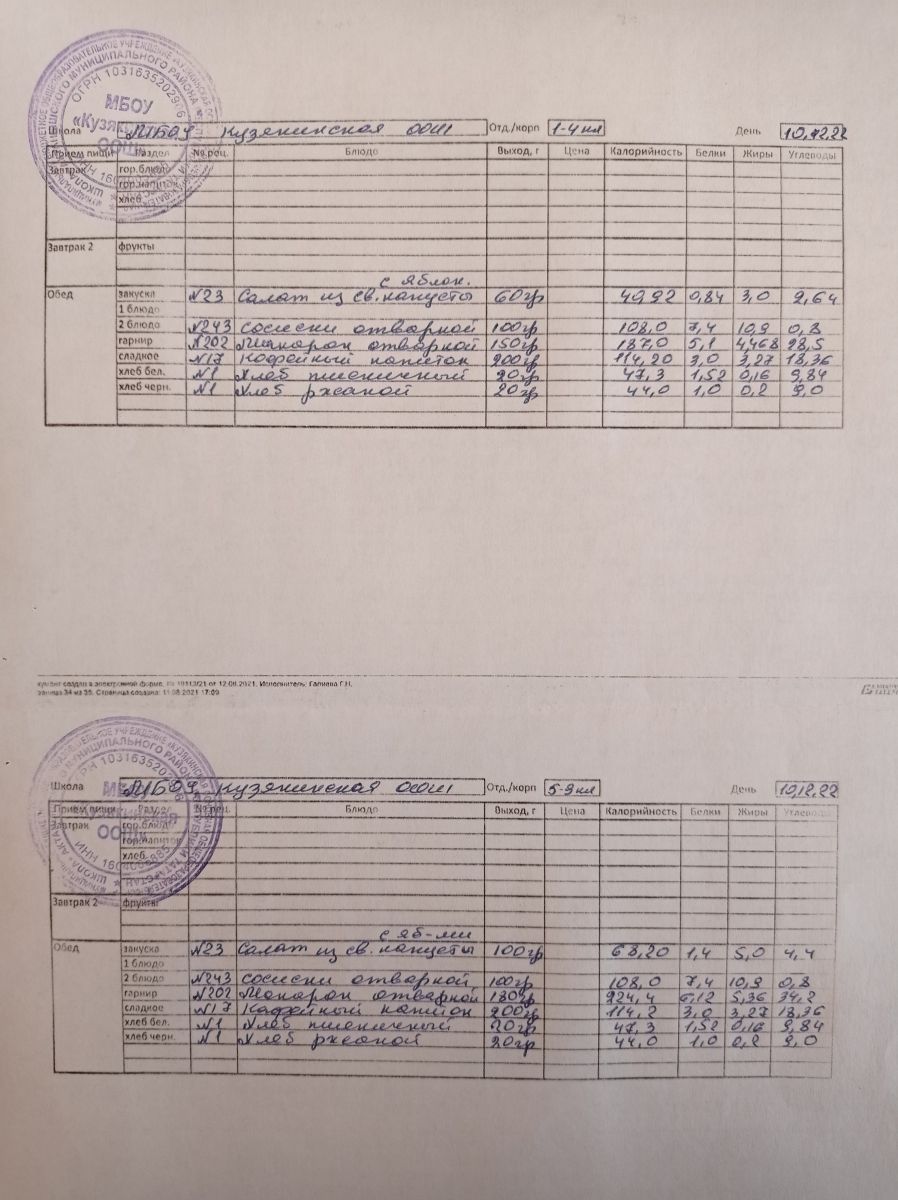 МБОУ
«Кузякинская
ООШ»
ОГРН 1031635202906
Школа МБОУ Кузякинская ООШ Отд./корп 1-4 кл День 10.12.22
Прием пищи Раздел № рец. Блюдо Выход, г Цена Калорийность Белки Жиры Углеводы
Завтрак гор.блюдо
гор.напиток
хлеб
Завтрак 2 фрукты
с яблок.
Обед закуска №23 Салат из св. капусты 60гр 40,92 0,84 3,0 2,64
1 блюдо
2 блюдо №243 сосиски отварной 100гр 108,0 7,4 10,9 0,8
гарнир №202 Макарон отварной 150гр 187,0 5,1 4,468 28,5
сладкое №17 Кофейный напиток 200гр 114,20 3,0 3,27 18,36
хлеб бел. №1 Хлеб пшеничный 20гр 47,3 1,52 0,16 9,84
хлеб черн. №1 Хлеб ржаной 20гр 44,0 1,0 0,2 9,0
кумент создан в электронной форме. от 12.08.2021. Исполнитель: Галиева Г.Н.
раница 34 из 35. Страница создана: 11.08.2021 17:09
ООШ»
Школа МБОУ Кузякинская ООШ Отд./корп 5-9 кл День 10.12.22
Прием пищи Раздел № рец. Блюдо Выход, г Цена Калорийность Белки Жиры Углеводы
Завтрак гор.блюдо
гор.напиток
хлеб
Завтрак 2 фрукты
с яб-ми
Обед закуска №23 Салат из св. капусты 100гр 68,20 1,4 5,0 4,4
1 блюдо
2 блюдо №243 сосиски отварной 100гр 108,0 7,4 10,9 0,8
гарнир №202 Макарон отварной 180гр 224,4 6,12 5,36 34,2
сладкое №17 Кофейный напиток 200гр 114,2 3,0 3,27 18,36
хлеб бел. №1 Хлеб пшеничный 20гр 47,3 1,52 0,16 9,84
хлеб черн. №1 Хлеб ржаной 20гр 44,0 1,0 0,2 9,0